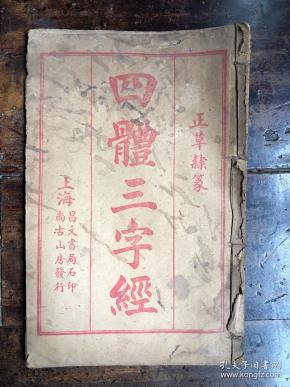 正草隸篆
四體三字經
上海
昌文書局石印
尚古山房發行
孔夫子旧书网